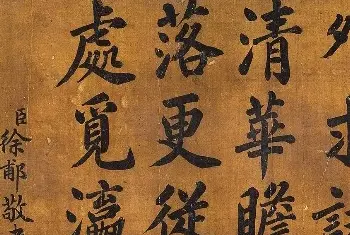 求
清華瞻
落更従
處覓瀛
臣徐郙敬